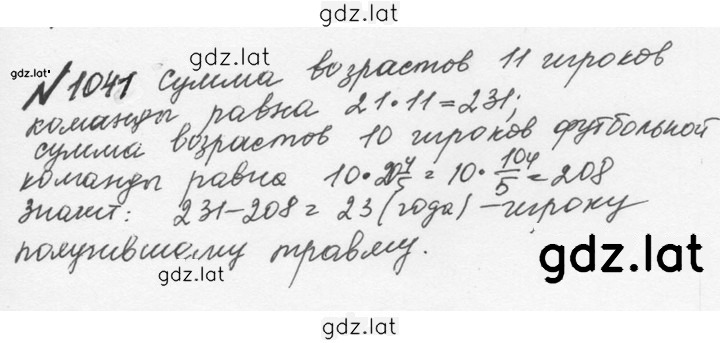 gdz.lat
gdz.lat
gdz.lat
№1041 Сумма возрастов 11 игроков
команды равна 21·11=231;
сумма возрастов 10 игроков футбольной
команды равна 10·20 4/5 = 10·104/5=208
Значит: 231-208=23 (года) -игроку
получившему травму.
gdz.lat
gdz.lat
gdz.lat